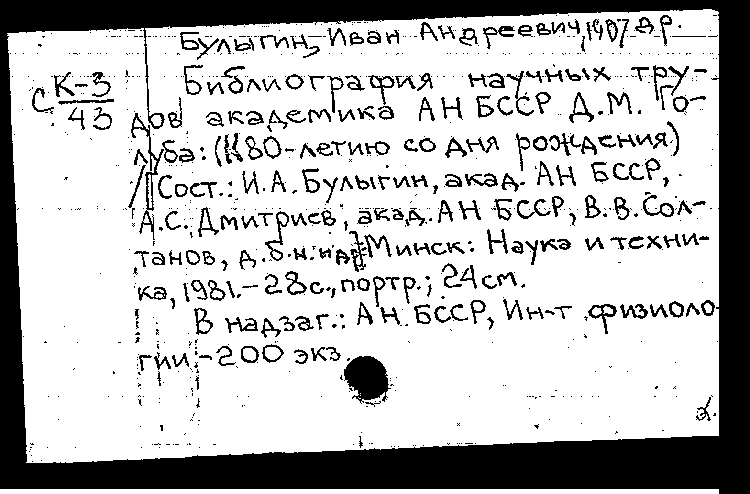 Булыгин, Иван Андреевич, 1907 др.
С К-3
43
Библиография научных тру-
дов академика АН БССР Д.М. Го-
луба: (К 80-летию со дня рождения)
/[Сост.: И.А. Булыгин, акад. АН БССР,
А.С. Дмитриев, акад. АН БССР, В.В. Сол-
танов, д.б.н. и др.] Минск: Наука и техни-
ка, 1981.- 28с., портр.; 24см.
В надзаг.: АН БССР, Ин-т физиоло-
гии - 200 экз.